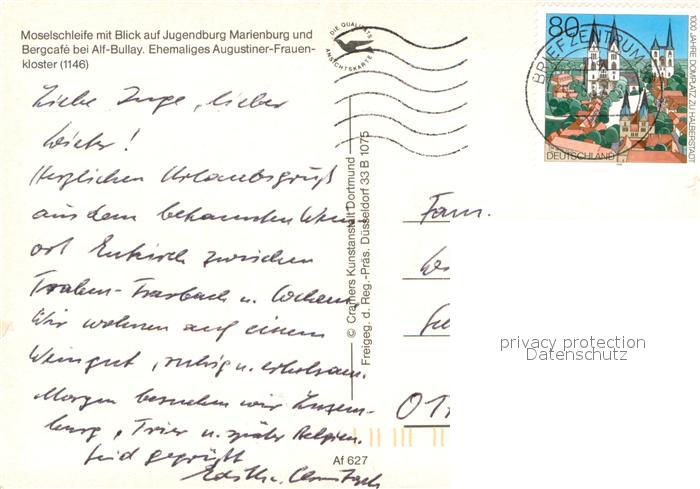 Moselschleife mit Blick auf Jugendburg Marienburg und
Bergcafé bei Alf-Bullay. Ehemaliges Augustiner-Frauen-
kloster (1146)
DIE QUALITÄTS
ANSICHTSKARTE
80
DEUTSCHLAND
1000 JAHRE DOMPLATZ ZU HALBERSTADT
BRIEFZENTRUM
Liebe Inge, lieber
!
Herzlichen Urlaubsgruß
aus dem bekannten Wein-
ort Enkirch zwischen
Traben-Trarbach u. Cochem.
Wir wohnen auf einem
Weingut, ruhig u. erholsam.
Morgen besuchen wir Luxem-
burg, Trier u. später Belgien.
Seid gegrüßt
Edith u.
© Cramers Kunstanstalt Dortmund
Freigeg. d. Reg.-Präs. Düsseldorf 33 B 1075
Af 627
Fam.
privacy protection
Datenschutz